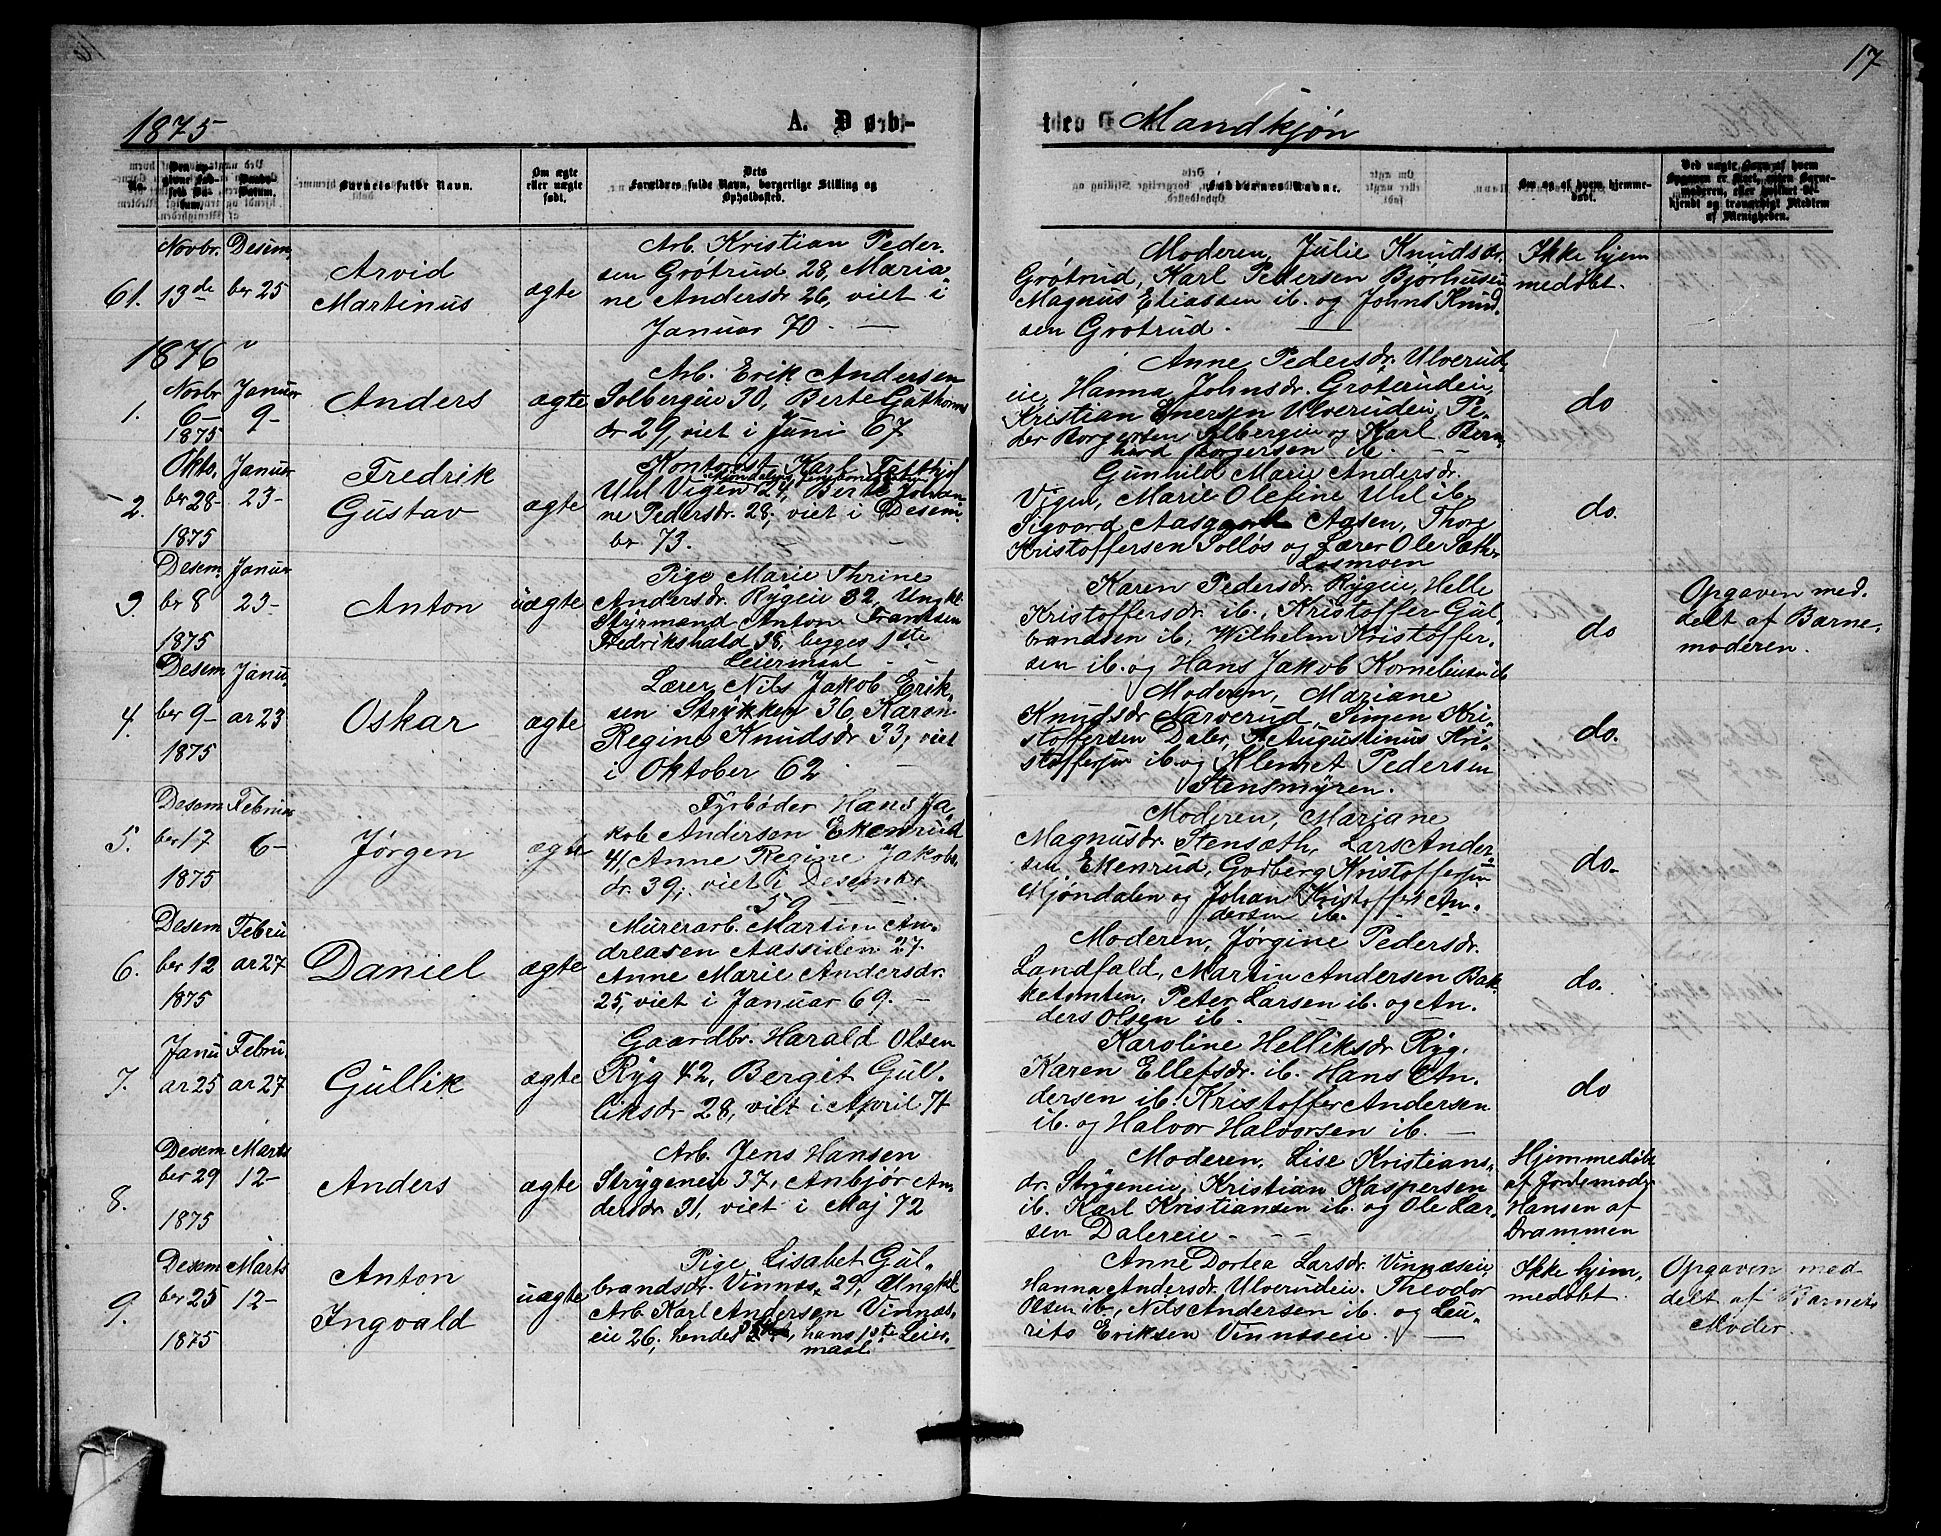 17
1875
A. Døb-
te
Mandkjøn
No.
Den opgivne Fødsels Datum.
Daabs Datum.
Barnets fulde Navn.
Om ægte eller uægte født.
Dets Forældres fulde Navn, borgerlige Stilling og Opholdssted.
Faddernes Navne.
Om og af hvem hjemmedøbt.
Ved uægte Børn af hvem Opgaven er skeet, enten Barnemoderen, eller hvilket bekjendt og troværdigt Medlem af Menigheden.
61.
Novbr.
13de
Desem
ber 25
Arvid
Martinus
ægte
Arb. Kristian Peder-
sen Grøtrud 28, Maria-
ne Andersdr 26, viet i
Januar 70. —
Moderen, Julie Knudsdr.
Grøtrud, Karl Pedersen Bjørhusen
Magnus Eliassen ib. og Johns Knud-
sen Grøtrud. —
Ikke hjem
medøbt.
1876
1.
Novbr
6-
1875
Januar
9-
Anders
ægte
Arb. Erik Andersen
Solbergeie 30, Berte Guthorms
dr 29, viet i Juni 67
Anne Pedersdr. Ulverud-
eie, Hanna Johnsdr. Grøterudeie,
Kristian Enersen Ulverudeie, Pe-
der Borgersen Solbergeie og Karl Bern-
hard Borgersen ib. —
do
2.
Okto-
ber 28-
1875
Januar
23-
Fredrik
Gustav
ægte
Kontorist Karl
Uhl Vigen 24, Berte Johan-
ne Pedersdr. 28, viet i Desem-
br 73.
Gunhild Marie Andersdr.
Vigen, Marie Olefine Uhl ib.
Sigvard Aasgaard Aasen, Thore
Kristoffersen Solløs og Lærer Ole Sæther
Losmoen
do.
3.
Desem
ber 8
1875
Januar
23-
Anton
uægte
Pige Marie Thrine
Andersdr. Rygeie 32, Ungkl.
Styrmand Anton Frantsen
Fredrikshald 38, begges 1ste
Leiermaal —
Karen Pedersdr. Rygeie, Helle
Kristoffersdr. ib., Kristoffer Gul-
brandsen ib., Wilhelm Kristoffer-
sen ib. og Hans Jakob Korneliusen ib
do
Opgaven med-
delt af Barne-
moderen.
4.
Desem
ber 9-
1875
Janu-
ar 23
Oskar
ægte
Lærer Nils Jakob Erik-
sen Strykken 36, Karen
Regine Knudsdr 33, viet
i Oktober 62. —
Moderen, Mariane
Knudsdr Narverud, Simen Kri-
stoffersen Daler, Augustinus Kri-
stoffersen ib. og Klemet Pedersen
Stensmyren.
do.
5.
Desem
ber 17
1875
Februar
6-
Jørgen
ægte
Fyrbøder Hans Ja-
kob Andersen Ekenrud
41, Anne Regine Jakobs-
dr. 39, viet i Desember
59
Moderen, Mariane
Magnusdr. Stensæth, Lars Ander-
sen Ekenrud, Gudberg Kristoffersen
Mjøndalen og Johan Kristoffer An-
dersen ib. —
do.
6.
Desem
ber 12
1875
Febru
ar 27
Daniel
ægte
Murerarb. Martin An-
dreasen Aassiden 27.
Anne Marie Andersdr.
25, viet i Januar 69. —
Moderen, Jørgine Pedersdr.
Landfald, Martin Andersen Bak-
ketomten, Peter Larsen ib. og An-
ders Olsen ib.
do.
7.
Janu
ar 25
Febru.
ar 27
Gullik
ægte
Gaardbr. Harald Olsen
Ryg 42, Bergit Gul-
liksdr 28, viet i April 71
Karoline Helliksdr Ryg.
Karen Ellefsdr. ib. Hans An-
dersen ib. Kristoffer Andersen
ib. og Halvor Halvorsen ib. —
do
8.
Desem
ber 29
1875
Marts
12-
Anders
ægte
Arb. Jens Hansen
Strygeneie 37, Anbjør An-
dersdr 31, viet i Maj 72
Moderen, Lise Kristians-
dr. Strygeneie, Kristian Kaspersen
ib. Karl Kristiansen ib. og Ole Lar-
sen Dalereie - - -
Hjemmedøbt
af Jordemoder
Hansen af
Drammen
9.
Desem
ber 25
1875
Marts
12-
Anton
Ingvald
uægte
Pige Lisabet Gul-
brandsdr. Vinnæs, 29, Ungkl.
Arb. Karl Andersen Vinnæs-
eie 26, hendes, hans 1ste Leier-
maal.
Anne Dortea Larsdr. Vinnæseie,
Hanna Andersdr. Ulverudeie. Theodor
Olsen ib., Nils Andersen ib. og Lau-
rits Eriksen Vinnæseie. —
Ikke hjem-
medøbt.
Opgaven med
delt af Barnets
Moder.